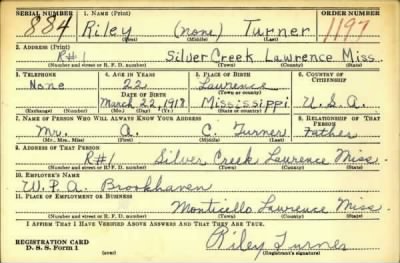 SERIAL NUMBER 1. NAME (Print) ORDER NUMBER
884 Riley (none) Turner 1197
(First) (Middle) (Last)
2. ADDRESS (Print)
R#1 Silver Creek Lawrence Miss.
(Number and street or R. F. D. number) (Town) (County) (State)
3. TELEPHONE 4. AGE IN YEARS 5. PLACE OF BIRTH 6. COUNTRY OF CITIZENSHIP
None 22 Lawrence
DATE OF BIRTH (Town or county)
March 22, 1918 Mississippi U.S.A.
(Exchange) (Number) (Mo.) (Day) (Yr.) (State or country)
7. NAME OF PERSON WHO WILL ALWAYS KNOW YOUR ADDRESS 8. RELATIONSHIP OF THAT PERSON
Mr. A. C. Turner Father
(Mr., Mrs., Miss) (First) (Middle) (Last)
9. ADDRESS OF THAT PERSON
R#1 Silver Creek Lawrence Miss.
(Number and street or R. F. D. number) (Town) (County) (State)
10. EMPLOYER'S NAME
W.P.A. Brookhaven
11. PLACE OF EMPLOYMENT OR BUSINESS
Monticello Lawrence Miss.
(Number and street or R. F. D. number) (Town) (County) (State)
I AFFIRM THAT I HAVE VERIFIED ABOVE ANSWERS AND THAT THEY ARE TRUE.
REGISTRATION CARD Riley Turner
D. S. S. Form 1 (over) (Registrant's signature)